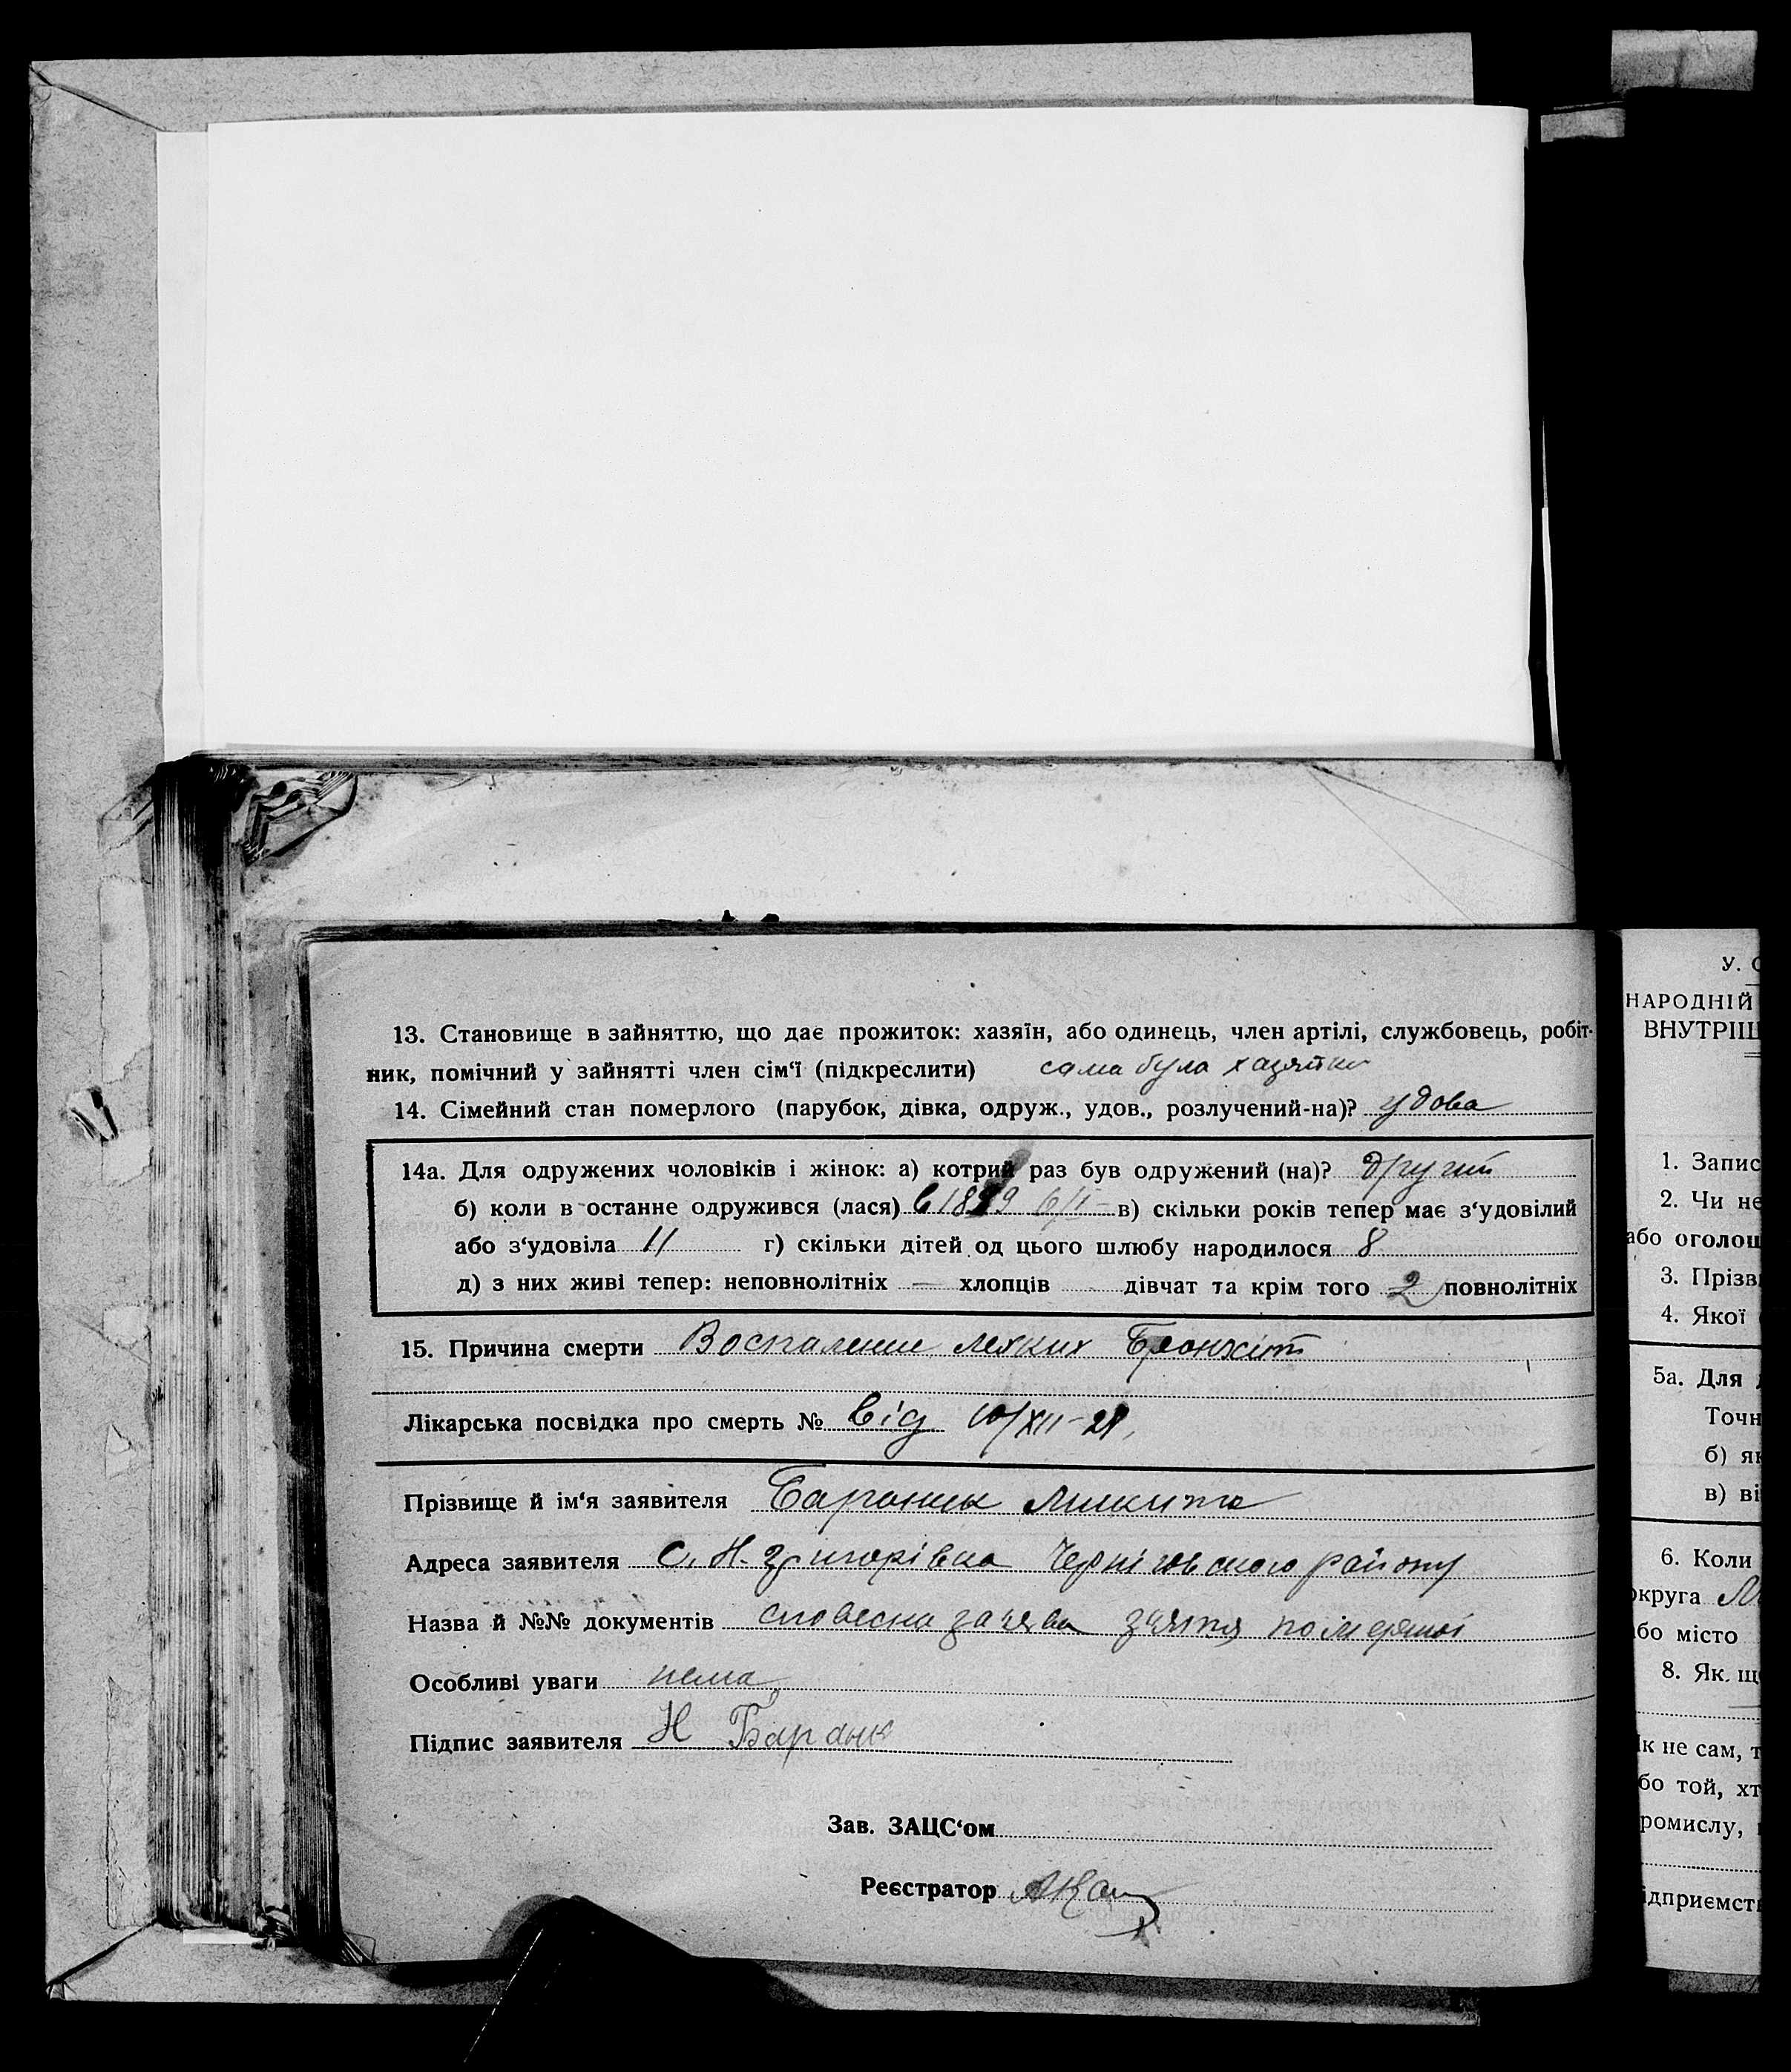 13. Становище в зайняттю, що дає прожиток: хазяїн, або одинець, член артілі, службовець, робіт-
ник, помічний у зайнятті член сім‘ї (підкреслити) сама була хазяйка
14. Сімейний стан померлого (парубок, дівка, одруж., удов., розлучений-на)? удова
14а. Для одружених чоловіків і жінок: а) котрий раз був одружений (на)? другий
б) коли в останнє одружився (лася) в 18 9 в) скільки років тепер має з‘удовілий
або з‘удовіла 11 г) скільки дітей од цього шлюбу народилося 8
д) з них живі тепер: неповнолітніх — хлопців дівчат та крім того 2 повнолітніх
15. Причина смерти Воспаление легких Бронхіт
Лікарська посвідка про смерть № від 10/XII-
Прізвище й ім‘я заявителя Микита
Адреса заявителя с. Н. Григорівка Черніговського району
Назва й №№ документів словесна заява зятя
Особливі уваги нема
Підпис заявителя Н
Зав. ЗАЦС‘ом
Реєстратор
У. С
НАРОДНІЙ
ВНУТРІШ
1. Запис
2. Чи не
або оголош
3. Прізв
4. Якої
5а. Для
Точн
б) як
в) ві
6. Коли
округа М
або місто
8. Як. щ
Як не сам, т
або той, хт
ромислу,
ідприємств